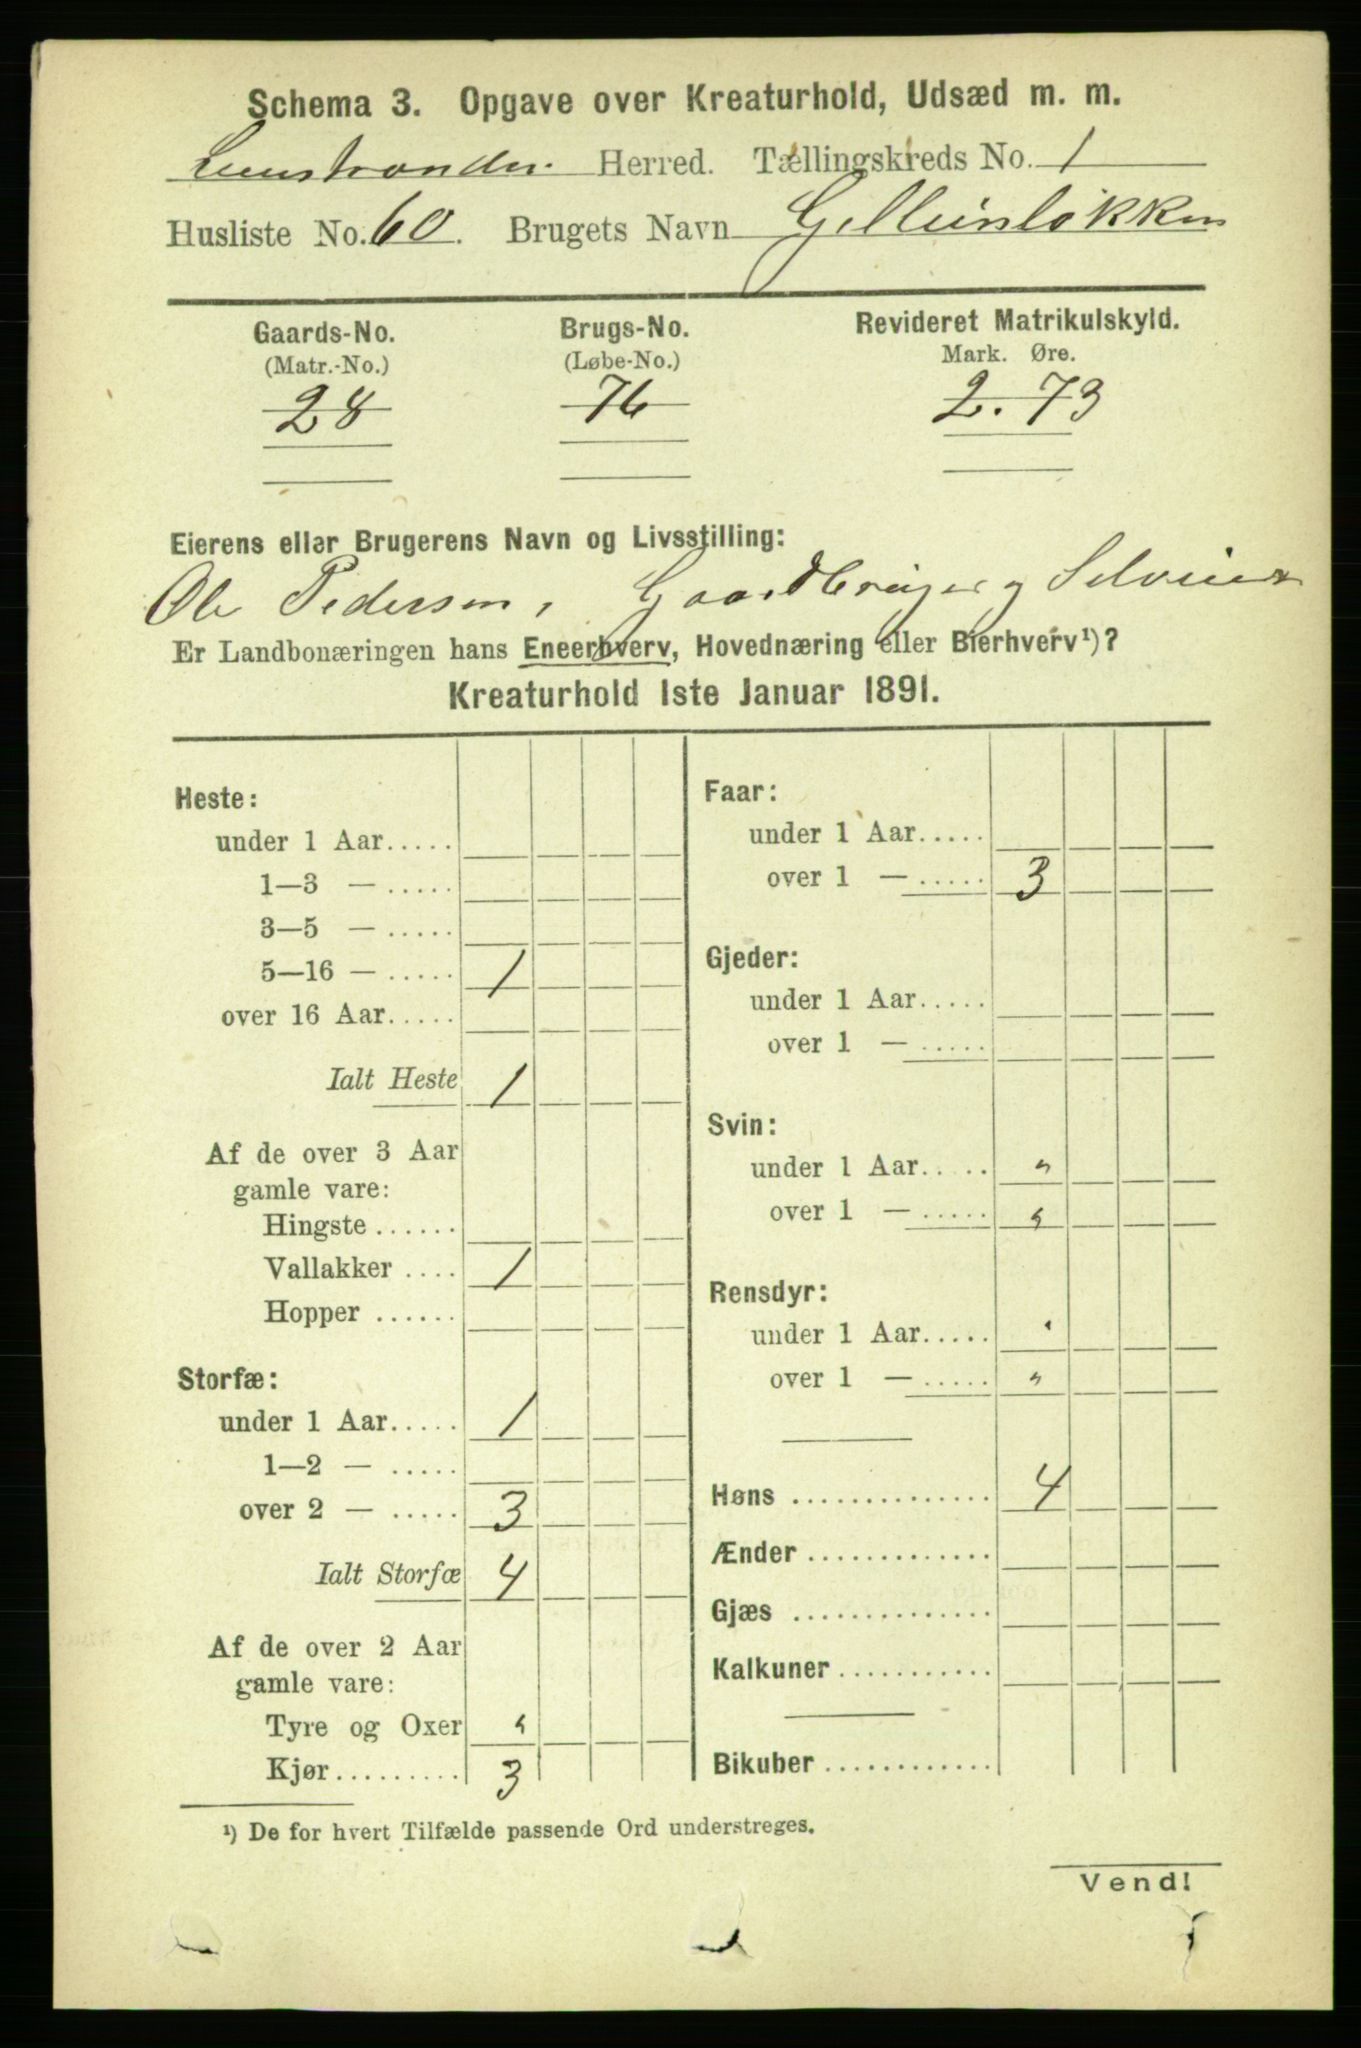 Schema 3. Opgave over Kreaturhold, Udsæd m. m.
Herred. Tællingskreds No. 1
Husliste No. 60. Brugets Navn Gilleinløkken
Gaards-No. Brugs-No. Revideret Matrikulskyld.
(Matr.-No.) (Løbe-No.) Mark. Øre.
28 76 2. 73
Eierens eller Brugerens Navn og Livsstilling:
Ole Pedersen, Gaardbruger og Selveier
Er Landbonæringen hans Eneerhverv, Hovednæring eller Bierhverv¹)?
Kreaturhold 1ste Januar 1891.
Heste:
under 1 Aar.....
1—3 — .....
3—5 — .....
5—16 — ..... 1
over 16 Aar.....
Ialt Heste 1
Af de over 3 Aar
gamle vare:
Hingste ......
Vallakker .... 1
Hopper ......
Storfæ:
under 1 Aar..... 1
1—2 — .....
over 2 — ..... 3
Ialt Storfæ 4
Af de over 2 Aar
gamle vare:
Tyre og Oxer "
Kjør......... 3
Faar:
under 1 Aar.....
over 1 — ..... 3
Gjeder:
under 1 Aar.....
over 1 — .....
Svin:
under 1 Aar..... "
over 1 — ..... "
Rensdyr:
under 1 Aar..... "
over 1 — ..... "
Høns .............. 4
Ænder .............
Gjæs ..............
Kalkuner...........
Bikuber ............
¹) De for hvert Tilfælde passende Ord understreges.
Vend!